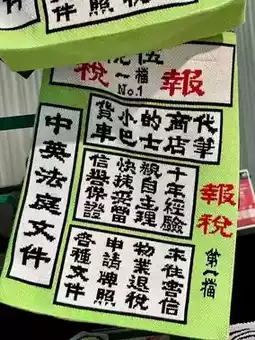 文件
牌照
報稅
伍
一檔
No.1
代筆
商店
的士
小巴
貨車
十年經驗
親自主理
快捷妥當
信譽保證
來往書信
物業退稅
申請牌照
各種文件
中英法庭文件
報稅
第一檔